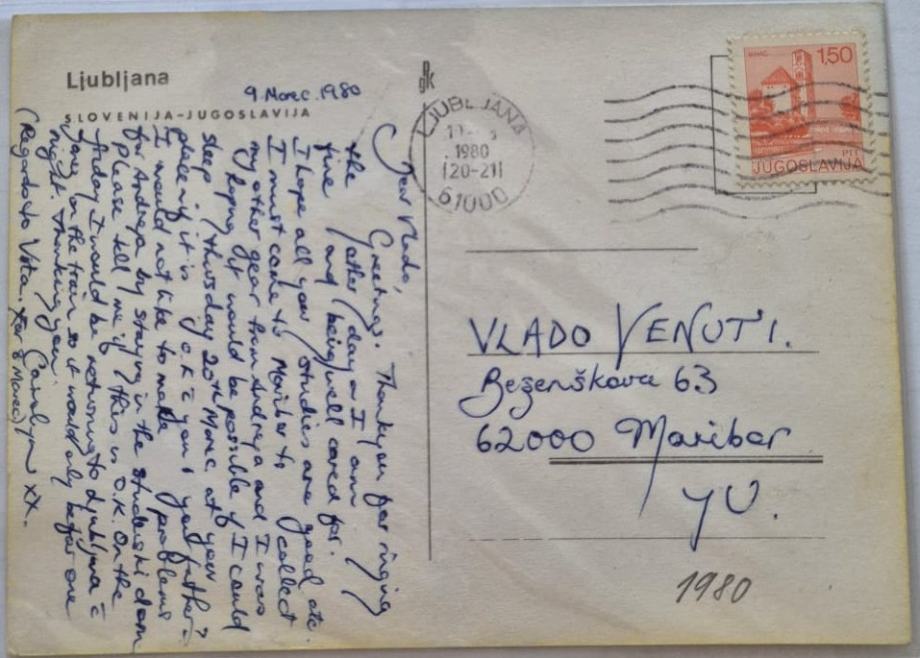 Ljubljana
SLOVENIJA-JUGOSLAVIJA
9 Marec 1980
Dear Vlado,
Greetings. Thankyou for ringing
the other day. I am
fine and being well cared for.
I hope all your studies are good etc.
I must come to Maribor to collect
my other gear from Andreja and I was
hoping it would be possible if I could
sleep thursday 20th Marec at your
place if it is o.k. c̄ you & your father?
I would not like to make problems
for Andreja by staying in the študentski dom
please tell me if this is O.K. On the
friday I would be returning to Ljubljana c̄
on the train so it would only be for one
night. Thanking you.
Carolyn xx.
(Regards to Vota. xx for 8 Marec)
LJUBLJANA
1980
(20-21)
61000
1,50
PTT
JUGOSLAVIJA
VLADO VENUTI.
Bezenškova 63
62000 Maribor
YU.
1980